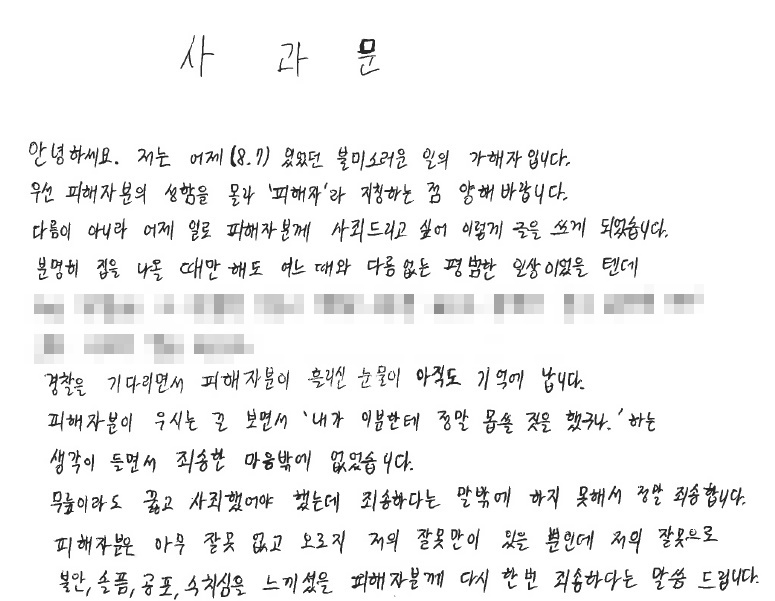 사 과 문
안녕하세요. 저는 어제(8.7) 있었던 불미스러운 일의 가해자입니다.
우선 피해자분의 성함을 몰라 '피해자'라 지칭하는 점 양해바랍니다.
다름이 아니라 어제 일로 피해자분께 사죄드리고 싶어 이렇게 글을 쓰게 되었습니다.
분명히 집을 나올 때만 해도 여느 때와 다름없는 평범한 일상이었을 텐데
경찰을 기다리면서 피해자분이 흘리신 눈물이 아직도 기억에 납니다.
피해자분이 우시는 걸 보면서 '내가 이분한테 정말 몹쓸 짓을 했구나.' 하는
생각이 들면서 죄송한 마음밖에 없었습니다.
무릎이라도 꿇고 사죄했어야 했는데 죄송하다는 말밖에 하지 못해서 정말 죄송합니다.
피해자분은 아무 잘못 없고 오로지 저의 잘못만이 있을 뿐인데 저의 잘못으로
불안, 슬픔, 공포, 수치심을 느끼셨을 피해자분께 다시 한번 죄송하다는 말씀 드립니다.